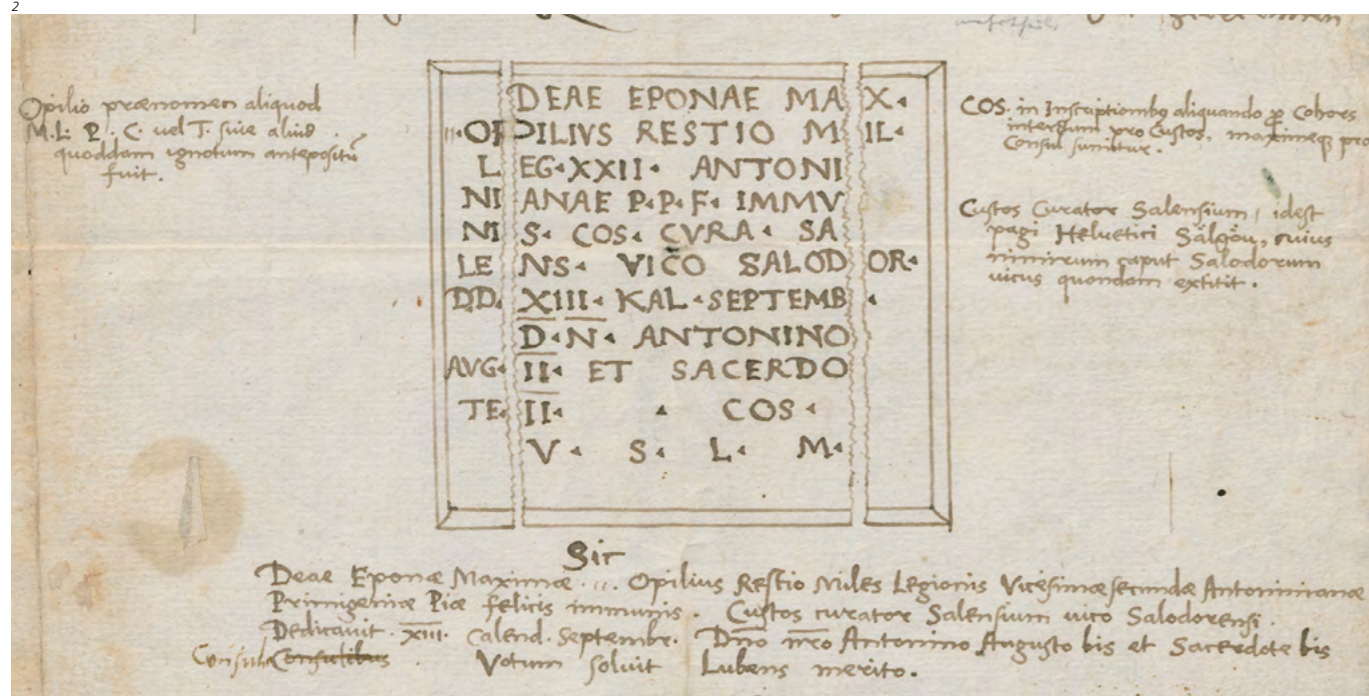 2
Opilio prænomen aliquod
M. L. P. C. uel T. siue aliud
quoddam ignotum antepositū
fuit.
DEAE EPONAE MAX·
··· OPPILIVS RESTIO MIL·
LEG·XXII· ANTONI
NIANAE P·P·F· IMMV
NIS· COS· CVRA· SA
LENS· VICO SALODOR·
DD· XIII· KAL·SEPTEMB·
D·N· ANTONINO
AVG· II· ET SACERDO
TE· II· · COS·
V· S· L· M·
COS. in Inscriptionibꝰ aliquando ꝓ Cohors
interdum pro Custos, maximeqꝫ pro
Consul sumitur.
Custos Curator Salensium, idest
pagi Heluetici Sälgöu, cuius
nimirum caput Salodorum
uicus quondam extitit.
Sic
Deae Eponæ Maximæ ·,,· Opilius Restio Miles Legionis Vicesimæsecundæ Antoninianæ
Primigeniæ Piæ felicis immunis. Custos curator Salensium uico Salodorensi.
Dedicauit. XIII. Calend. Septembr. Dno nro Antonino Augusto bis et Sacerdote bis
Consulibus Votum soluit Lubens merito.